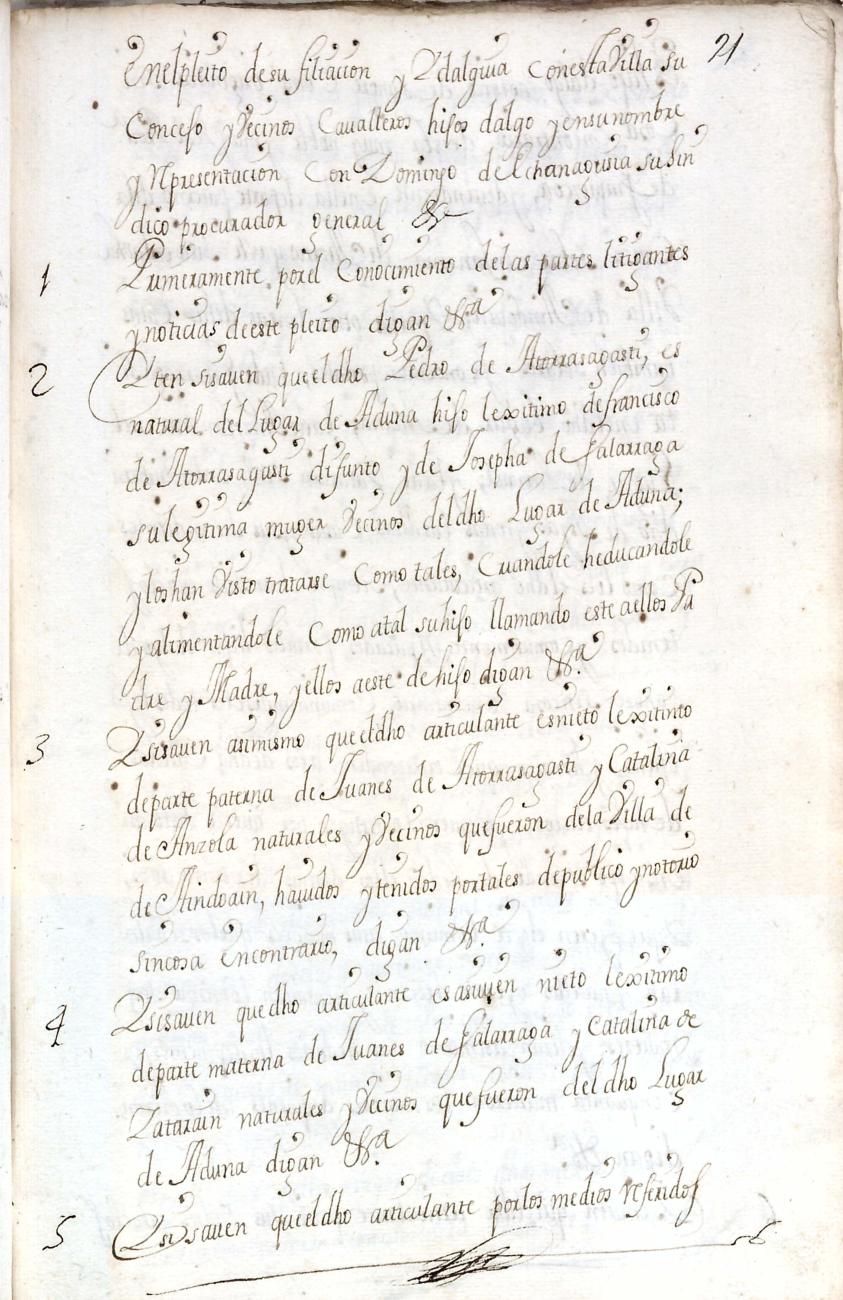 21
En el pleito de su filiacion y Ydalguia con esta Villa su
Concejo y Vecinos Cavalleros hijos dalgo y en su nombre
y Representacion Con Domingo de Echanagusia su Sin
dico procurador general &
1 Primeramente por el Conocimiento de las partes litigantes
y noticias de este pleito digan &ª
2 Yten si saven que el dho Pedro de Atorrasagasti, es
natural del Lugar de Aduna hijo lexitimo de francisco
de Atorrasagasti difunto y de Josepha de Galarraga
su legitima muger Vecinos del dho Lugar de Aduna;
y los han Visto tratarse Como tales, Criandole heducandole
y alimentandole Como atal su hijo llamando este a ellos Pa
dre y Madre, y ellos a este de hijo digan &ª
3 Y si saven asimismo que el dho articulante es nieto lexitimo
de parte paterna de Juanes de Atorrasagasti y Catalina
de Anzola naturales y Vecinos que fueron de la Villa de
de Aindoain, havidos y tenidos por tales de publico y notorio
sin cosa en contrario, digan &ª
4 Y si saven que dho articulante es asi bien nieto lexitimo
de parte materna de Juanes de Galarraga y Catalina de
Zatarain naturales y Vecinos que fueron del dho Lugar
de Aduna digan &ª
5 Y si saven que el dho articulante por los medios Referidos